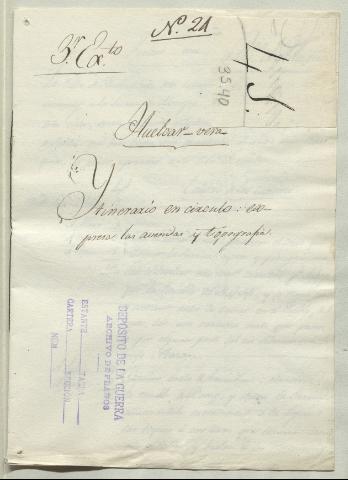 Nº 21
3.r Ex.to
4 S.
3340
Huelcar-vera
Ytinerario en circulo: es-
presa las avenidas y topografia.
DEPÓSITO DE LA GUERRA
ARCHIVO DE PLANOS
ESTANTE TABLA
CARTERA SECCIÓN
NÚM